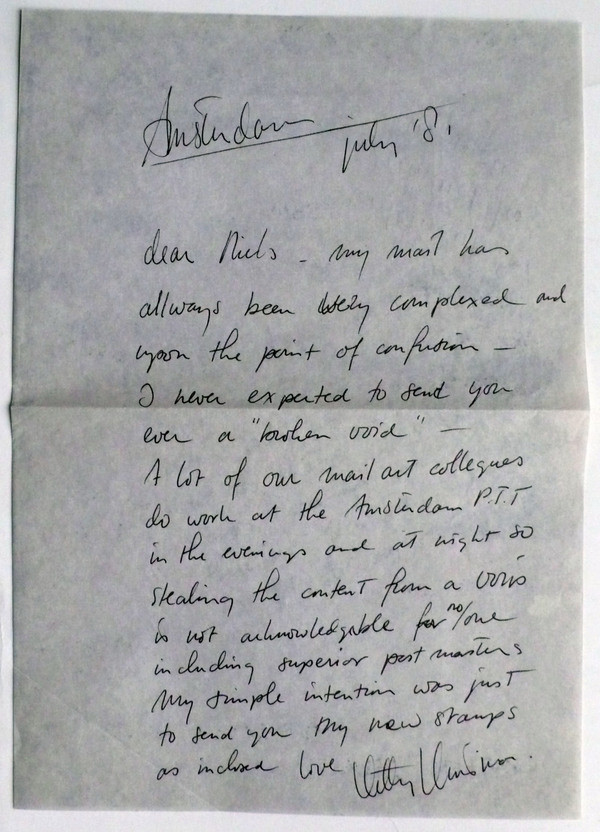 Amsterdam
july '81
dear Niels - my mail has
allways been very complexed and
upon the point of confusion —
I never expected to send you
ever a "broken void" —
A lot of our mail art collegues
do work at the Amsterdam P.T.T
in the evenings and at night so
stealing the content from a void
is not acknowledgable for no/one
including superior post masters
My simple intention was just
to send you my new stamps
as inclosed love